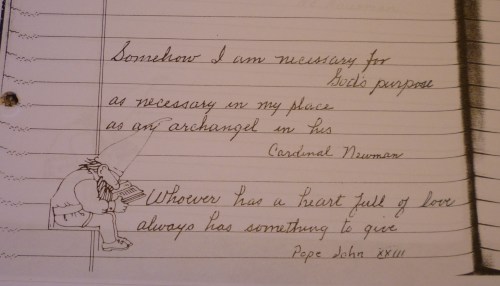 Somehow I am necessary for
God's purpose
as necessary in my place
as an archangel in his
Cardinal Newman
Whoever has a heart full of love
always has something to give
Pope John XXIII